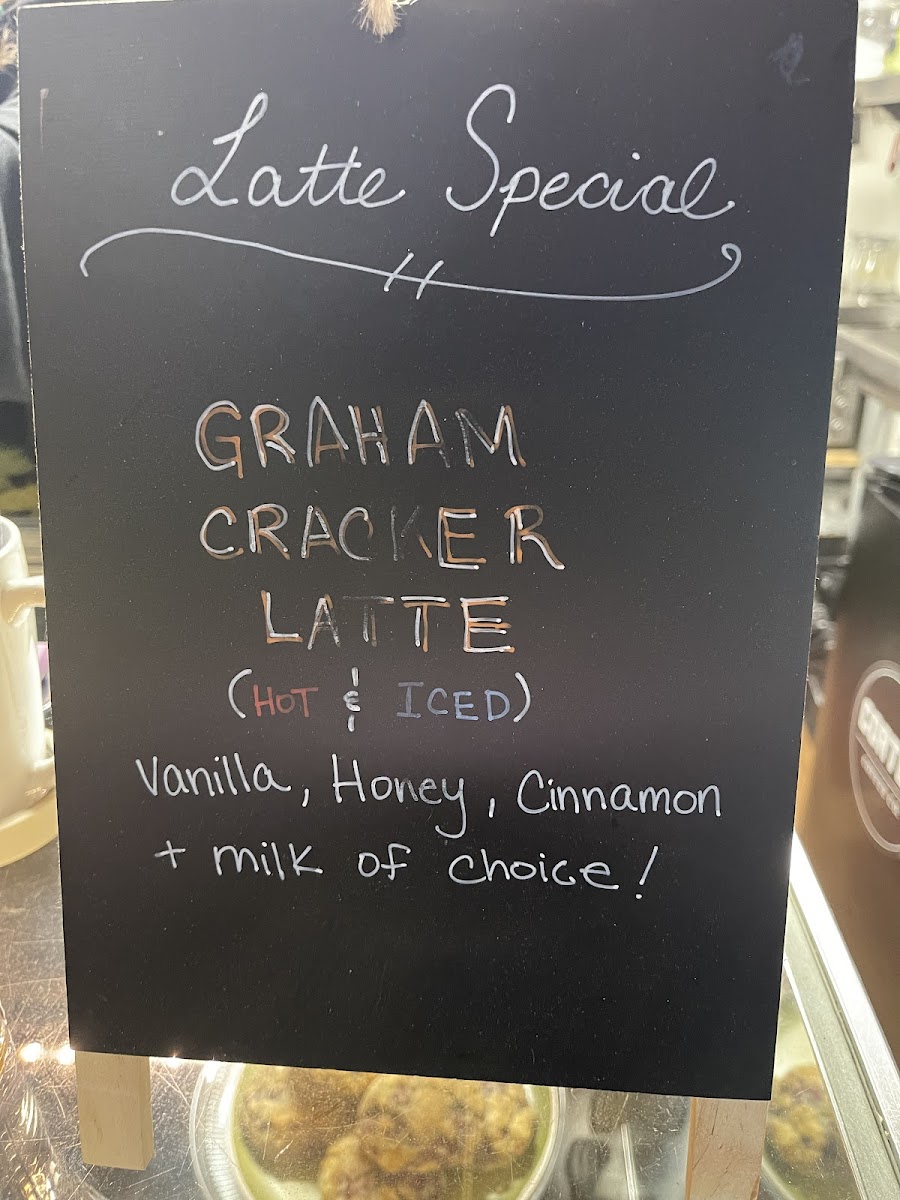 Latte Special
GRAHAM
CRACKER
LATTE
(HOT & ICED)
Vanilla, Honey, Cinnamon
+ milk of choice!